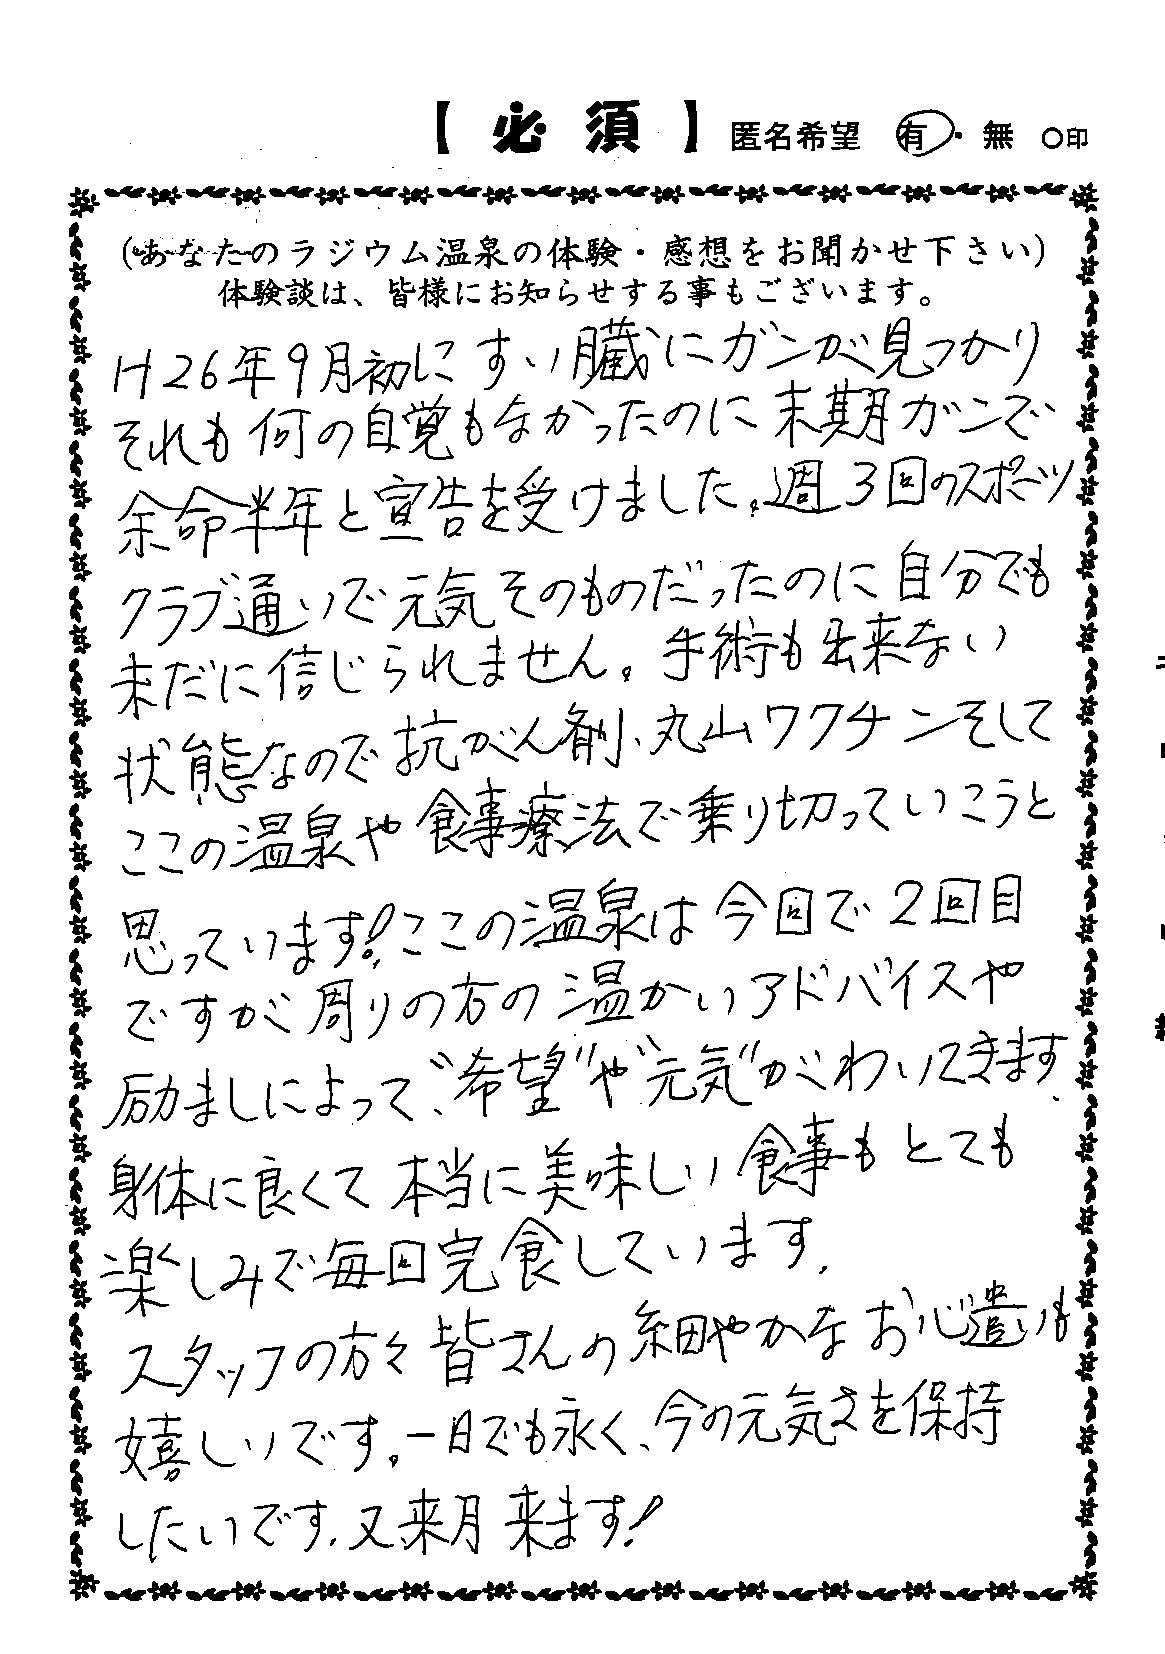 【必須】 匿名希望 有・無 ○印
(あなたのラジウム温泉の体験・感想をお聞かせ下さい)
体験談は、皆様にお知らせする事もございます。
H26年9月初にすい臓にガンが見つかり
それも何の自覚もなかったのに末期ガンで
余命半年と宣告を受けました。週3回のスポーツ
クラブ通いで元気そのものだったのに自分でも
未だに信じられません。手術も出来ない
状態なので抗がん剤、丸山ワクチンそして
ここの温泉や食事療法で乗り切っていこうと
思っています!ここの温泉は今回で2回目
ですが周りの方の温かいアドバイスや
励ましによって、"希望"や"元気"がわいてきます、
身体に良くて本当に美味しい食事もとても
楽しみで毎回完食しています、
スタッフの方々皆さんの細やかなお心遣いも
嬉しいです。一日でも永く、今の元気さを保持
したいです、又来月来ます!